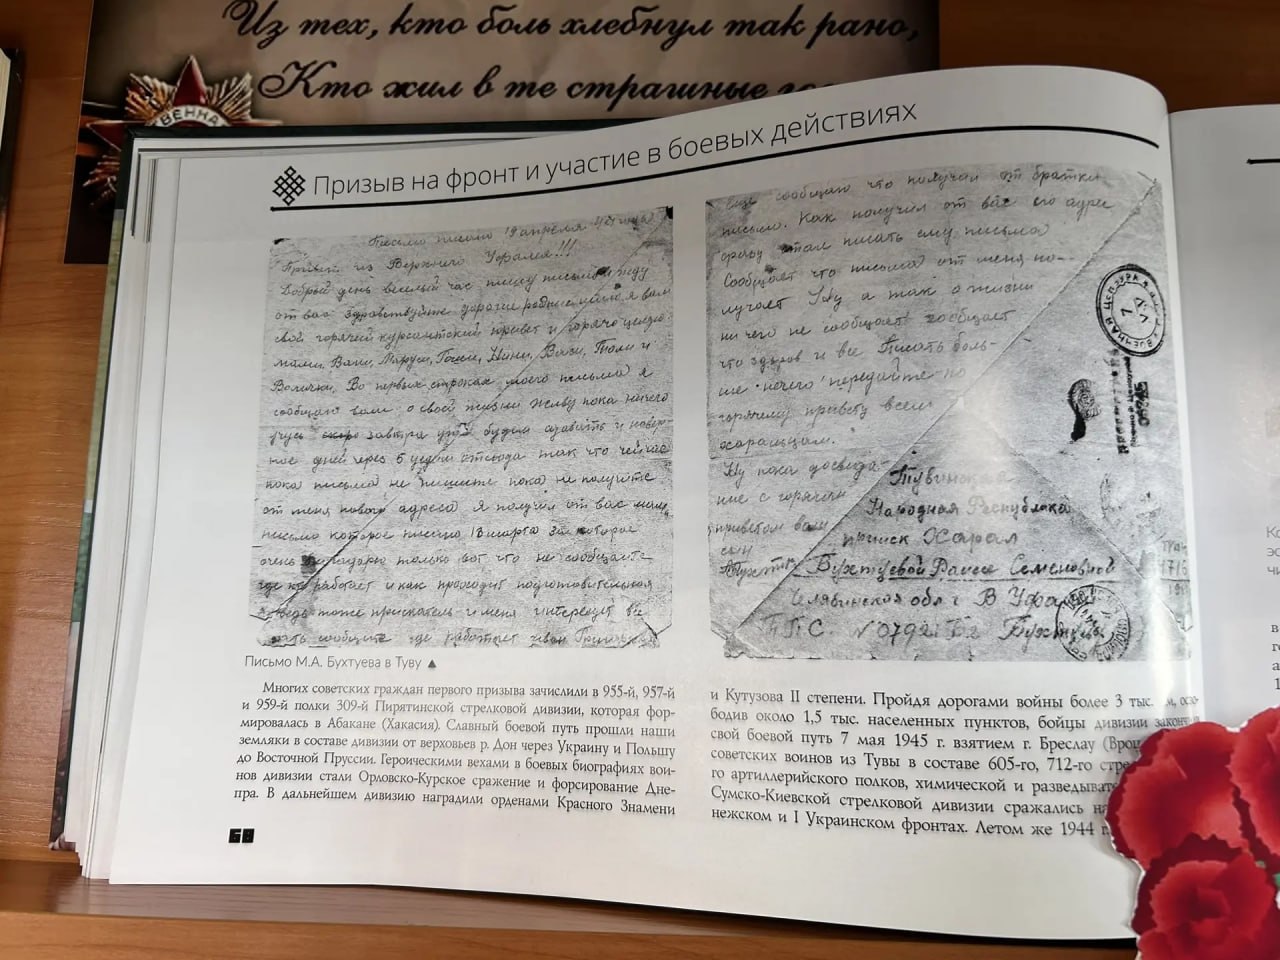 Из тех, кто боль хлебнул так рано,
Кто жил в те страшные
Призыв на фронт и участие в боевых действиях
Письмо писано 19 апреля
Привет из Верхнего Уфалея!!!
Добрый день веселый час пишу письмо и жду
от вас здравствуйте дорогие родные я вам
свой горячий курсантский привет и горячо целую
мами, Вани, Маруси, Гоши, Нини, Вали, Толи и
Во первых строках моего письма я
сообщаю вам о своей жизни живу пока ничего
учусь завтра уже будем сдавать и
дней через 5 отсюда так что сейчас
пока письма не пишите пока не получите
от меня нового адреса Я получил от вас мама
письмо которое писано 13 марта за которое
очень только вот что не сообщаете
где кто работает и как проходит подготовительная
тоже прискатель и меня интересует
сообщите где работает
Еще сообщаю что получил от братки
письмо. Как получил от вас его адрес
сразу стал писать ему письма
Сообщает что письма от меня по-
лучает Ну а так о жизни
ничего не сообщает сообщает
что здоров и все Писать боль-
ше нечего передайте по
горячему привету всем
харальцам.
Ну пока досвида-
ние с горячим
приветом ваш
сын
Бухтуев
Тувинская
Народная Республика
прииск Харал
Бухтуевой Раисе Семеновной
Челябинская обл г В Уфалей
П.П.С. N 0792
Письмо М.А. Бухтуева в Туву ▲
Многих советских граждан первого призыва зачислили в 955-й, 957-й
и 959-й полки 309-й Пирятинской стрелковой дивизии, которая фор-
мировалась в Абакане (Хакасия). Славный боевой путь прошли наши
земляки в составе дивизии от верховьев р. Дон через Украину и Польшу
до Восточной Пруссии. Героическими вехами в боевых биографиях вои-
нов дивизии стали Орловско-Курское сражение и форсирование Дне-
пра. В дальнейшем дивизию наградили орденами Красного Знамени
и Кутузова II степени. Пройдя дорогами войны более 3 тыс. осво-
бодив около 1,5 тыс. населенных пунктов, бойцы дивизии
свой боевой путь 7 мая 1945 г. взятием г. Бреслау
советских воинов из Тувы в составе 605-го, 712-го
го артиллерийского полков, химической и
Сумско-Киевской стрелковой дивизии сражались
нежском и I Украинском фронтах. Летом же 1944
68